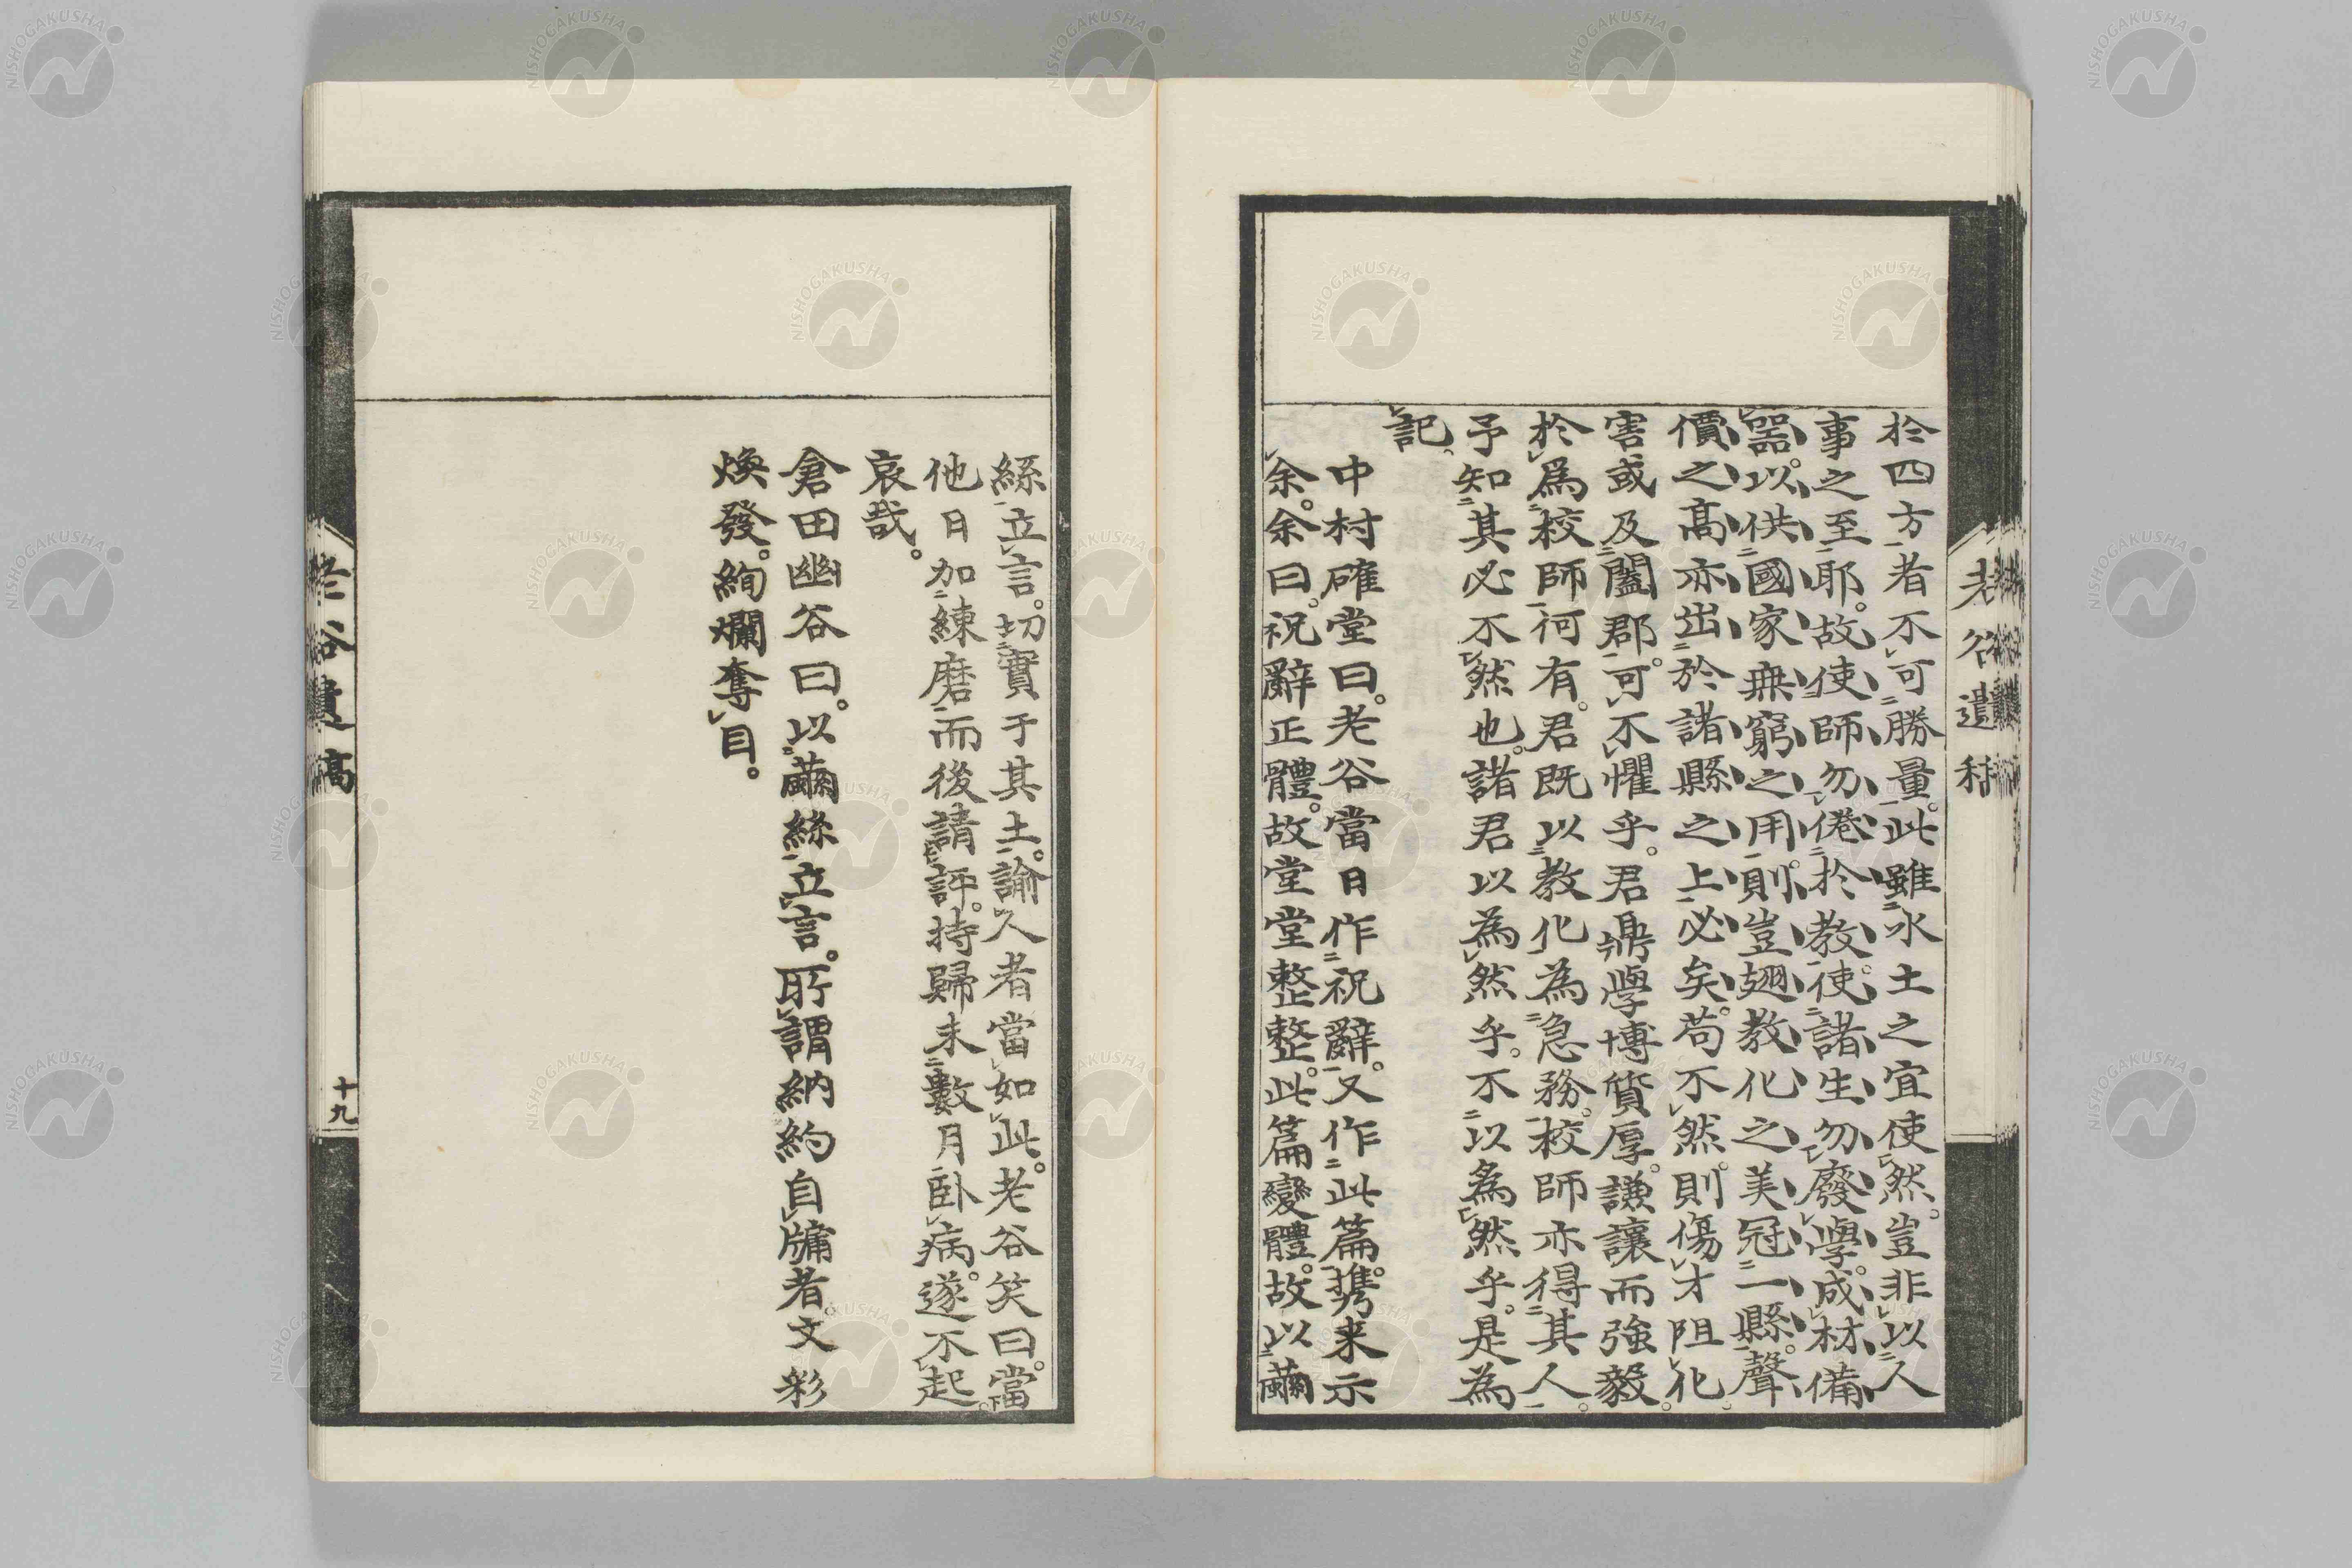 於四方者不可勝量。此雖水土之宜使然。豈非以人
事之至耶。故使師勿倦於教。使諸生勿廢學。成材備
器。以供國家無窮之用。則豈翅教化之美冠一縣。聲
價之髙亦出於諸縣之上必矣。苟不然。則傷才阻化。
害或及闔郡。可不懼乎。君鼎學博質厚。謙讓而強毅。
於爲校師何有。君既以教化為急務。校師亦得其人。
予知其必不然也。諸君以為然乎。不以為然乎。是為
記。
中村確堂曰。老谷當日作祝辭。又作此篇。携来示
余。余曰。祝辭正體。故堂堂整整。此篇變體。故以繭
老谷遺稿
絲立言。切實于其土。諭人者當如此。老谷笑曰。當
他日加練磨而後請評。持歸未數月卧病。遂不起。
哀哉。
倉田幽谷曰。以繭絲立言。所謂納約自牖者。文彩
煥發。絢爛奪目。
老谷遺稿
十九
NISHOGAKUSHA